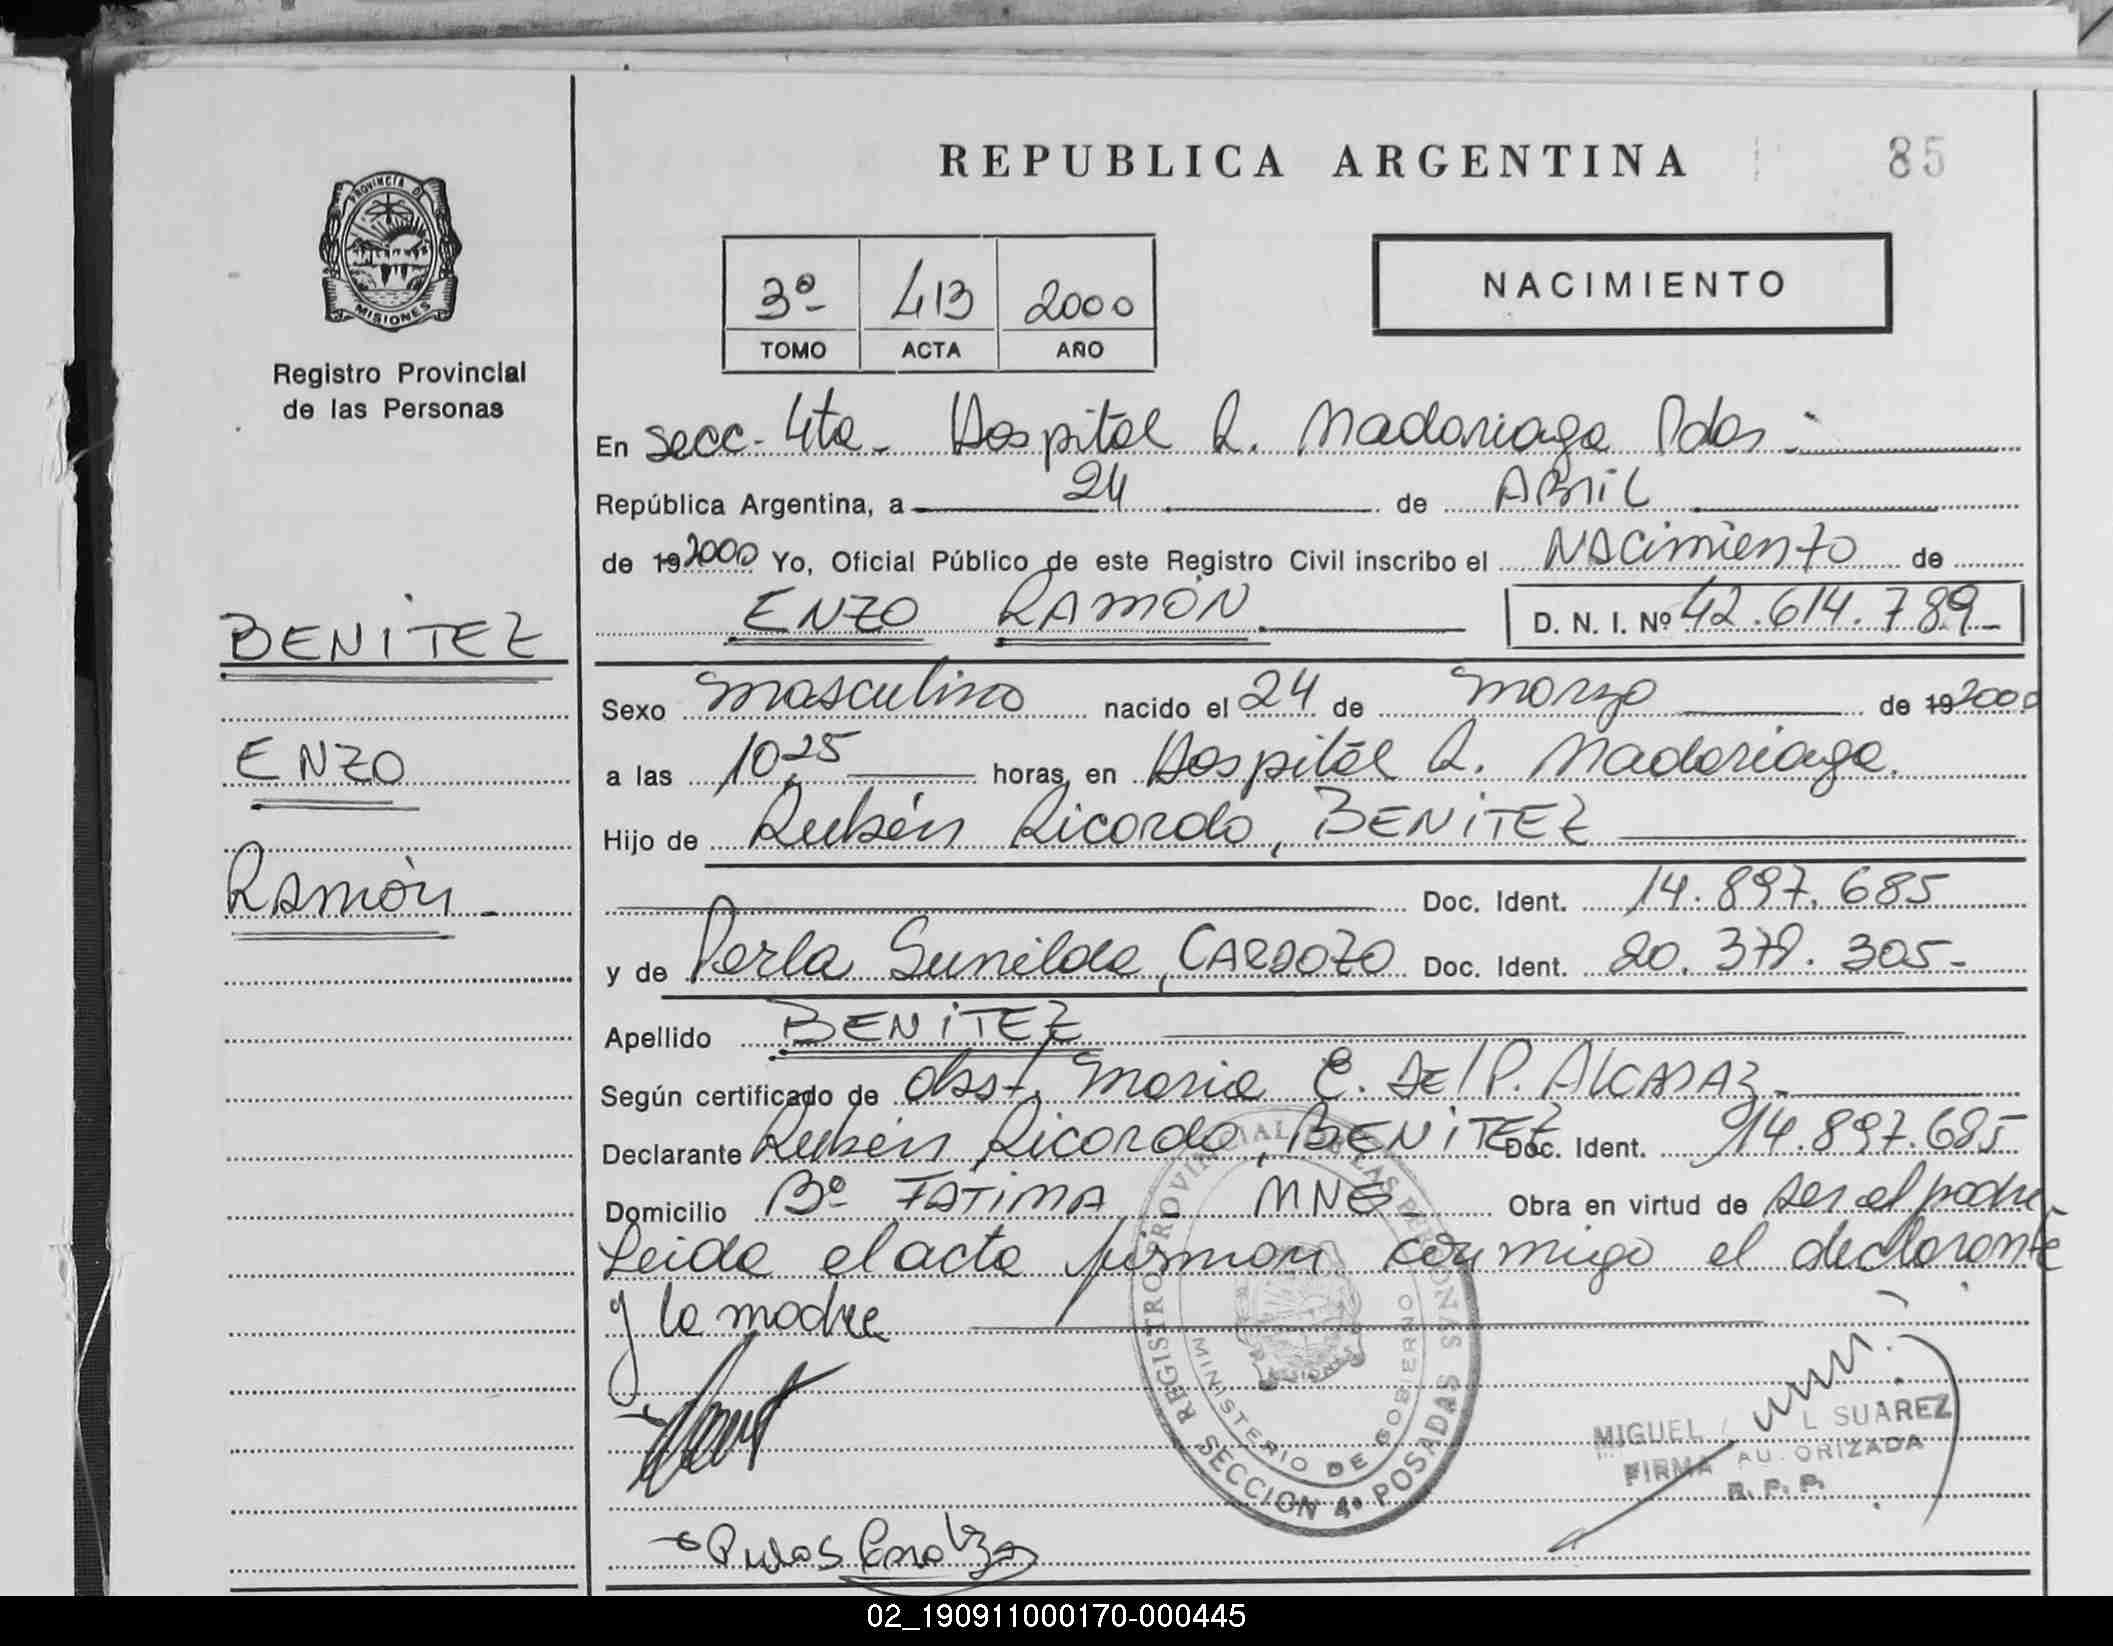 REPUBLICA ARGENTINA
85
PROVINCIA DE
MISIONES
Registro Provincial
de las Personas
3º
413
2000
TOMO
ACTA
AÑO
NACIMIENTO
En secc. 4ta - Hospital R. Madariaga Pdas -
República Argentina, a 24 de ABRIL
de 19 2000 Yo, Oficial Público de este Registro Civil inscribo el Nacimiento de
ENZO RAMÓN. D. N. I. Nº 42.614.789-
BENITEZ
ENZO
RAMÓN -
Sexo masculino nacido el 24 de marzo de 19 2000
a las 10,25 horas, en Hospital R. Madariaga.
Hijo de Rubén Ricardo, BENITEZ
Doc. Ident. 14.897.685
y de Perla Sunilda, CARDOZO Doc. Ident. 20.379.305-
Apellido BENITEZ
Según certificado de obst. Maria E. DEl P. ALCARAZ -
Declarante Rubén Ricardo, BENITEZ Doc. Ident. 14.897.685
Domicilio Bº FATIMA - MNES Obra en virtud de ser el padre
Leida el acta firman conmigo el declarante
y la madre
REGISTRO PROVINCIAL DE LAS PERSONAS
MINISTERIO DE GOBIERNO
SECCION 4ª POSADAS
MIGUEL L SUAREZ
FIRMA AU.ORIZADA
R. P. P.
02_190911000170-000445